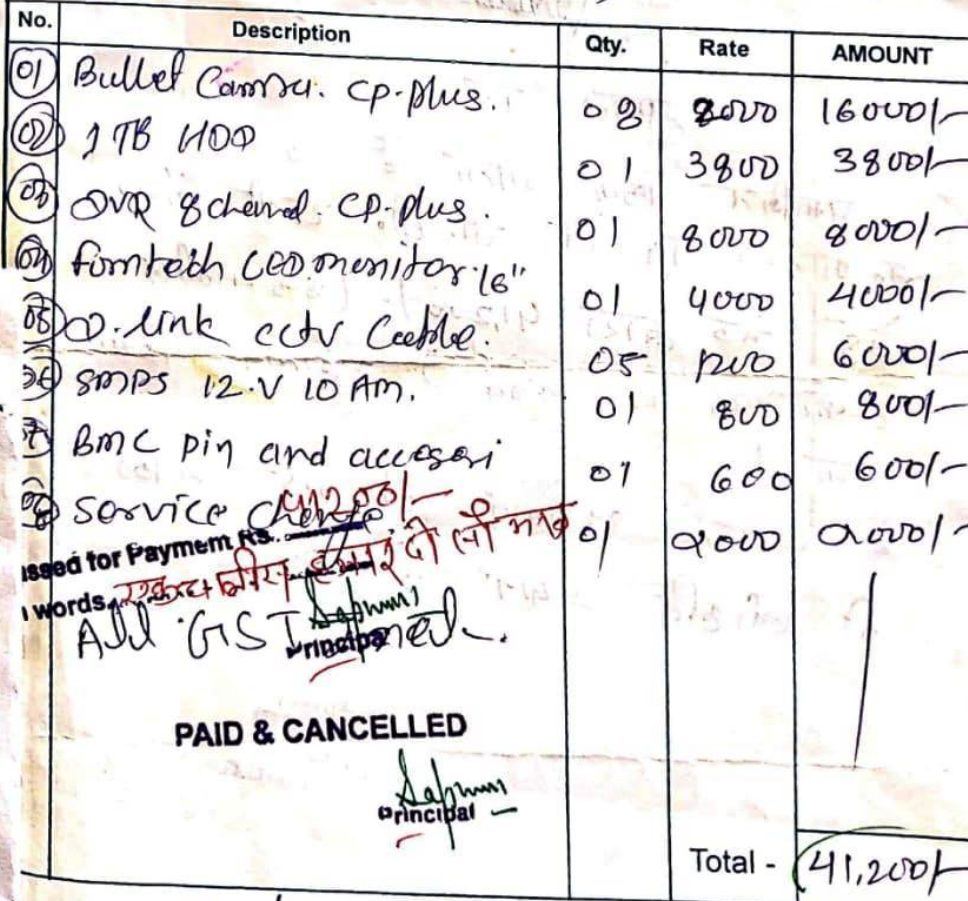 No. Description Qty. Rate AMOUNT
01 Bullet Camra. CP-Plus. 08 2000 16000/-
02 1 TB HDD 01 3800 3800/-
03 DVR 8 chennel. CP-Plus. 01 8000 8000/-
04 LED monitor 16" 01 4000 4000/-
05 D-link cctv Cable. 05 1200 6000/-
06 SMPS 12.V 10 AM. 01 800 800/-
07 BMC Pin and accesori 01 600 600/-
08 Service 01 2000 2000/-
41200/-
issed for Payment Rs.
words
All GST
Principal
PAID & CANCELLED
Principal
Total - 41,200/-